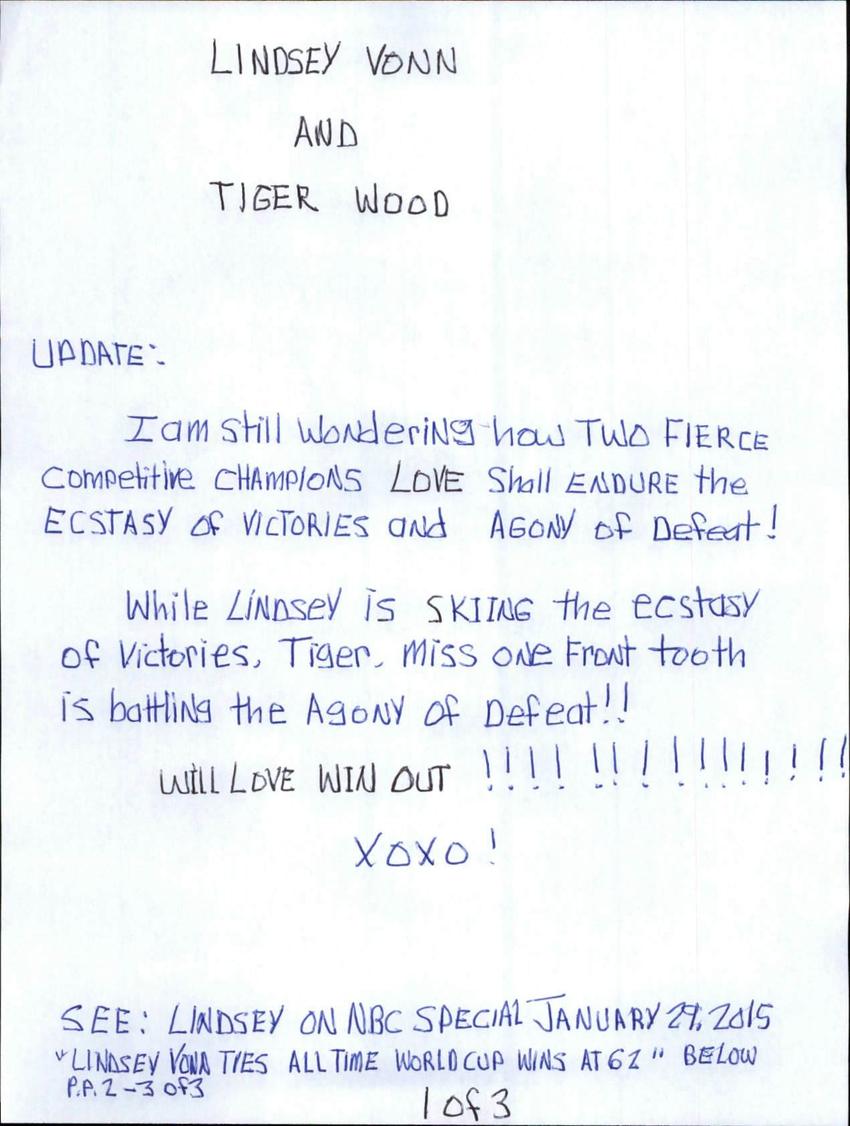 LINDSEY VONN
AND
TIGER WOOD
UPDATE:
I am still wondering how TWO FIERCE
competitive CHAMPIONS LOVE Shall ENDURE the
ECSTASY of VICTORIES and AGONY of Defeat!
While LINDSEY is SKIING the ecstasy
of Victories, Tiger, Miss one Front tooth
is battling the Agony of Defeat!!
WILL LOVE WIN OUT !!!! !! ! ! ! ! ! ! ! ! ! !
XOXO!
SEE: LINDSEY ON NBC SPECIAL JANUARY 27, 2015
"LINDSEY VONN TIES ALL TIME WORLD CUP WINS AT 62" BELOW
P.P. 2-3 of 3
1 of 3